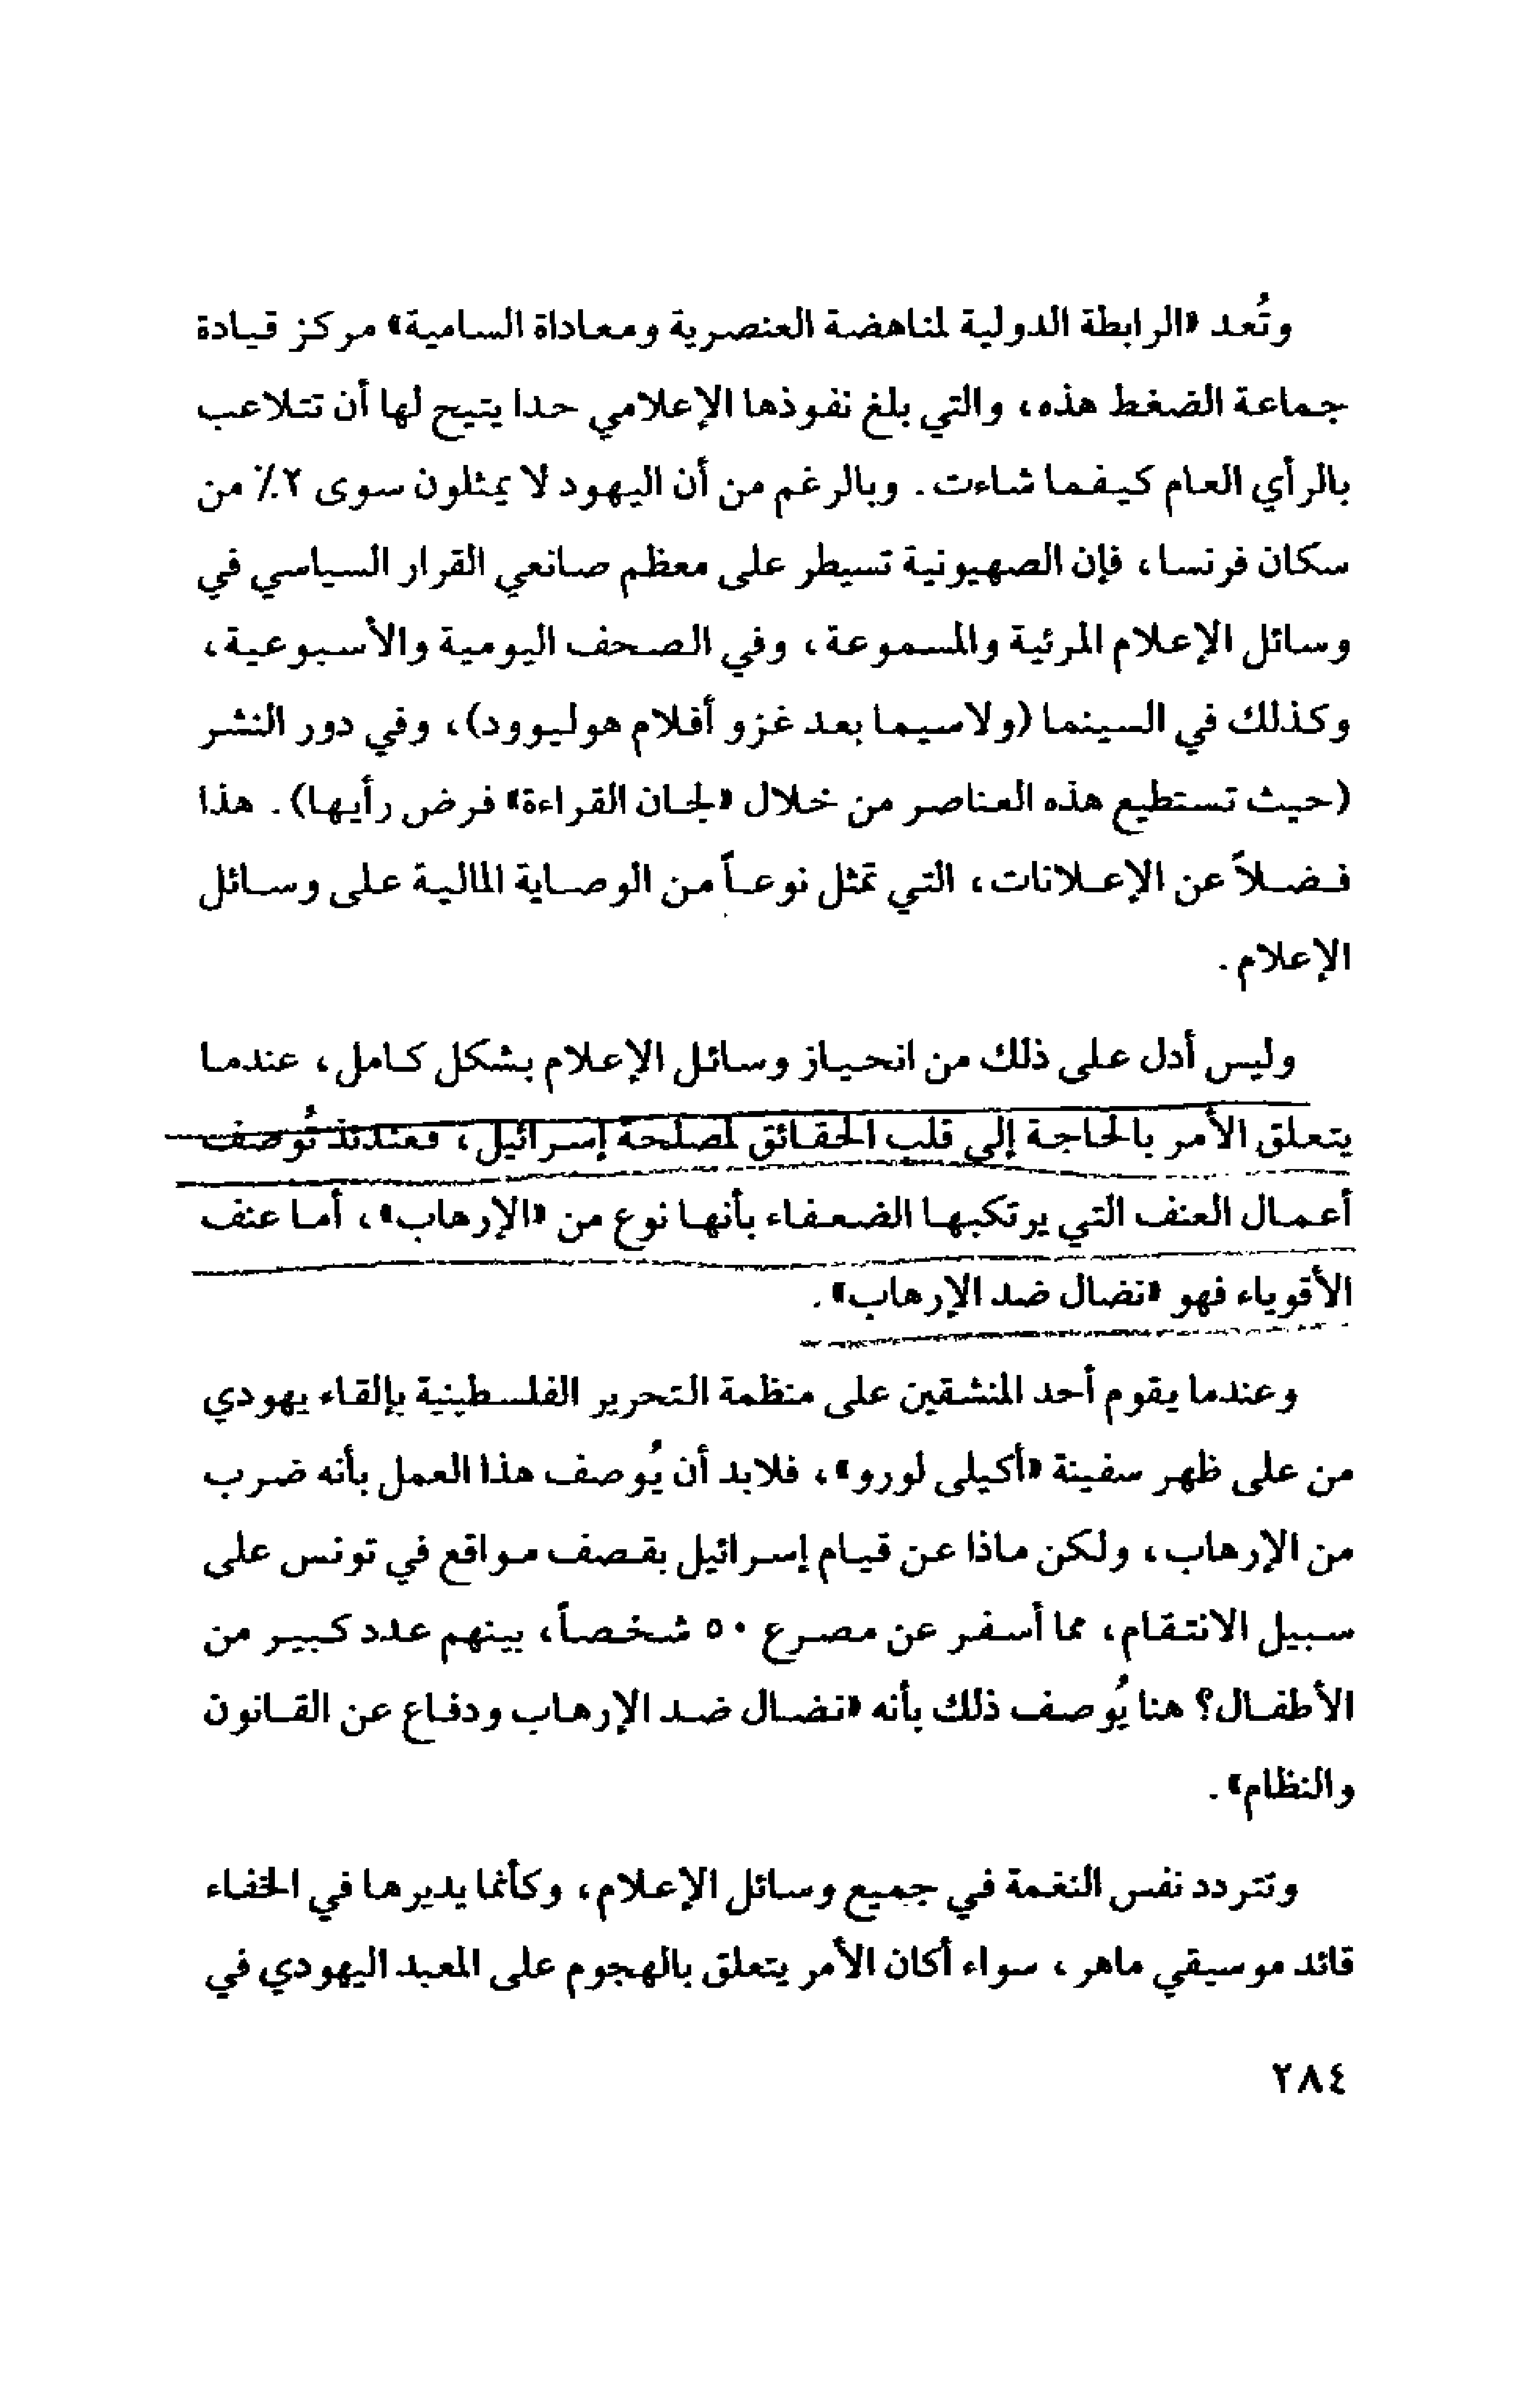 وتُعد «الرابطة الدولية لمناهضة العنصرية ومعاداة السامية» مركز قيادة
جماعة الضغط هذه، والتي بلغ نفوذها الإعلامي حدا يتيح لها أن تتلاعب
بالرأي العام كيفما شاءت. وبالرغم من أن اليهود لا يمثلون سوى ٢٪ من
سكان فرنسا، فإن الصهيونية تسيطر على معظم صانعي القرار السياسي في
وسائل الإعلام المرئية والمسموعة، وفي الصحف اليومية والأسبوعية،
وكذلك في السينما (ولاسيما بعد غزو أفلام هوليوود)، وفي دور النشر
(حيث تستطيع هذه العناصر من خلال «لجان القراءة» فرض رأيها). هذا
فضلاً عن الإعلانات، التي تمثل نوعاً من الوصاية المالية على وسائل
الإعلام.
وليس أدل على ذلك من انحياز وسائل الإعلام بشكل كامل، عندما
يتعلق الأمر بالحاجة إلى قلب الحقائق لمصلحة إسرائيل، فعندئذ تُوصف
أعمال العنف التي يرتكبها الضعفاء بأنها نوع من «الإرهاب»، أما عنف
الأقوياء فهو «نضال ضد الإرهاب».
وعندما يقوم أحد المنشقين على منظمة التحرير الفلسطينية بإلقاء يهودي
من على ظهر سفينة «أكيلى لورو»، فلابد أن يُوصف هذا العمل بأنه ضرب
من الإرهاب، ولكن ماذا عن قيام إسرائيل بقصف مواقع في تونس على
سبيل الانتقام، مما أسفر عن مصرع ٥٠ شخصاً، بينهم عدد كبير من
الأطفال؟ هنا يُوصف ذلك بأنه «نضال ضد الإرهاب ودفاع عن القانون
والنظام».
وتتردد نفس النغمة في جميع وسائل الإعلام، وكأنما يديرها في الخفاء
قائد موسيقي ماهر، سواء أكان الأمر يتعلق بالهجوم على المعبد اليهودي في
٢٨٤